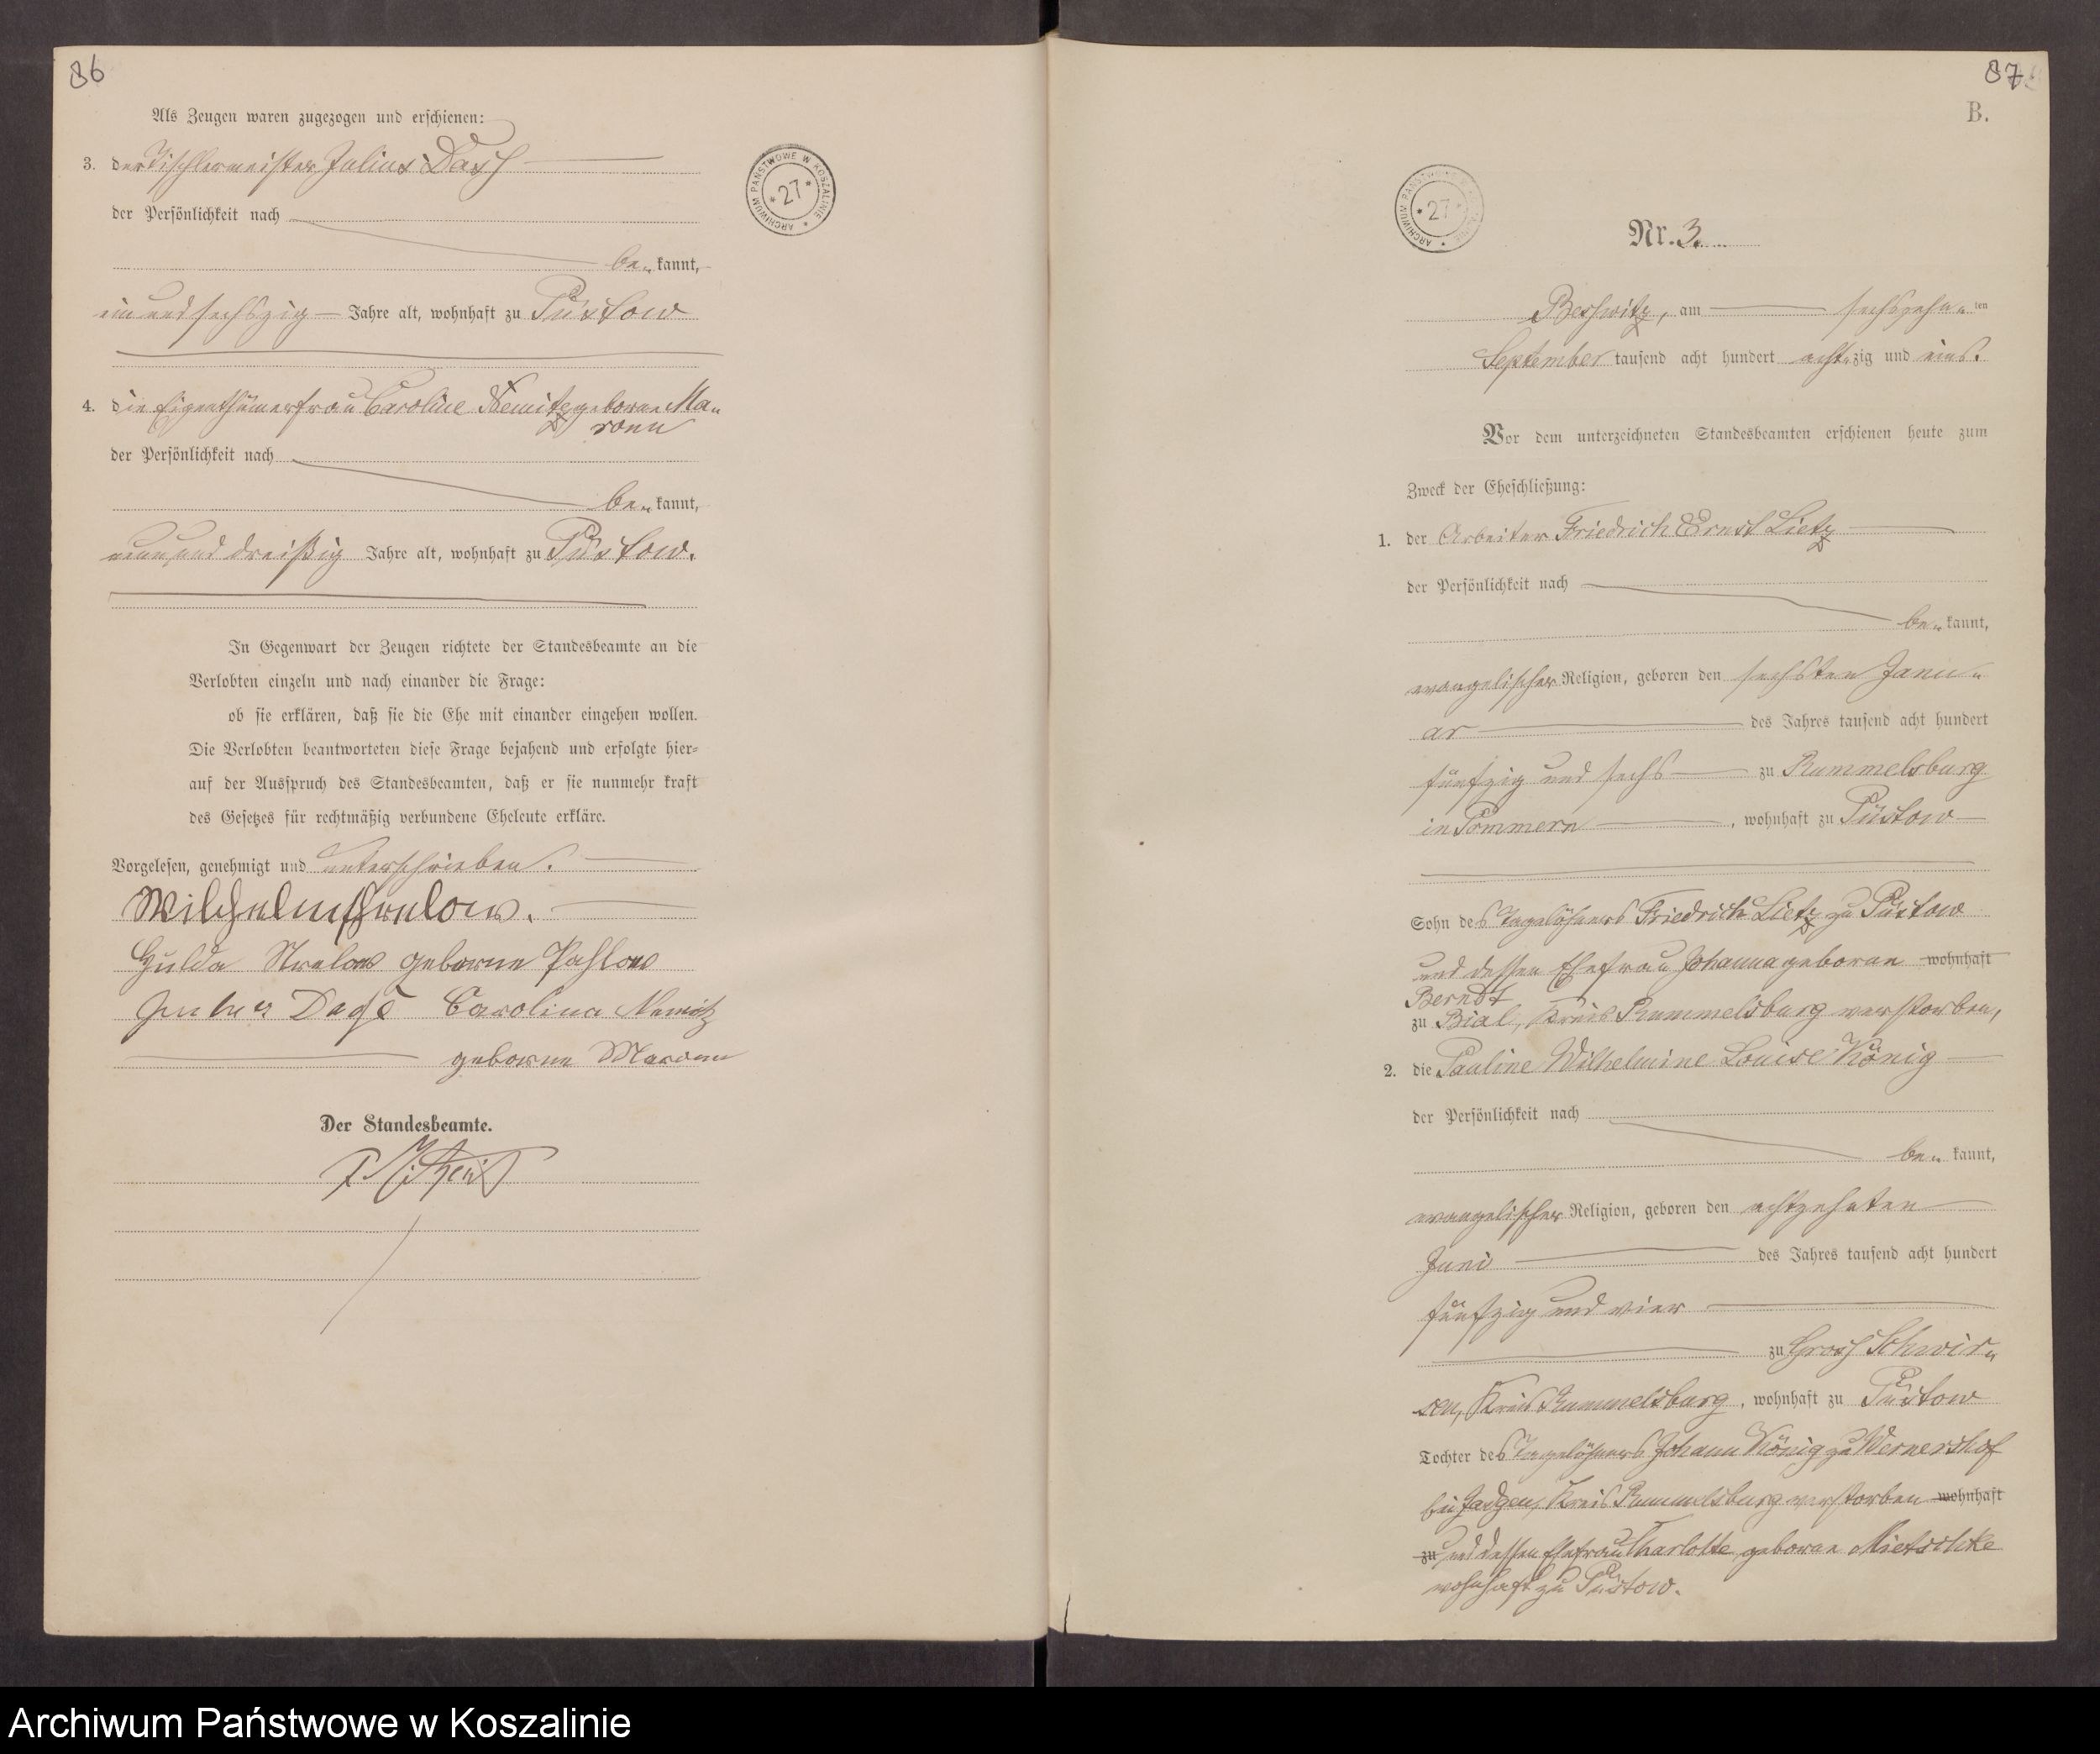 86
Als Zeugen waren zugezogen und erschienen:
3. der Tischlermeister Julius Dassh
der Persönlichkeit nach
be„kannt,
ein und sechszig Jahre alt, wohnhaft zu Püstow
4. die Eigenthümerfrau Caroline Nemitz geborne Ma„
ronn
der Persönlichkeit nach
be„kannt,
neun und dreißig Jahre alt, wohnhaft zu Püstow.
In Gegenwart der Zeugen richtete der Standesbeamte an die
Verlobten einzeln und nach einander die Frage:
ob sie erklären, daß sie die Ehe mit einander eingehen wollen.
Die Verlobten beantworteten diese Frage bejahend und erfolgte hier=
auf der Ausspruch des Standesbeamten, daß er sie nunmehr kraft
des Gesetzes für rechtmäßig verbundene Eheleute erkläre.
Vorgelesen, genehmigt und unterschrieben.
Wilhelm Strelow.
Hulda Strelow geborne Pahlow
Julius Carolina Nemitz
geborne Maronn
Der Standesbeamte.
ARCHIWUM PAŃSTWOWE W KOSZALINIE
* 27 *
87
B.
ARCHIWUM PAŃSTWOWE W KOSZALINIE
* 27 *
Nr. 3.
Beshwitz, am sechszehn„ten
September tausend acht hundert acht„zig und eins.
Vor dem unterzeichneten Standesbeamten erschienen heute zum
Zweck der Eheschließung:
1. der Arbeiter Friedrich Ernst Lietz
der Persönlichkeit nach
be„kannt,
evangelischer Religion, geboren den sechsten Janu„
ar des Jahres tausend acht hundert
fünfzig und sechs zu Rummelsburg
in Pommern, wohnhaft zu Püstow
Sohn des Tagelöhners Friedrich Lietz zu Püstow
und dessen Ehefrau Johanna geborne wohnhaft
Berndt
zu Bial, Kreis Rummelsburg verstorben,
2. die Pauline Wilhelmine Louise König
der Persönlichkeit nach
be„kannt,
evangelischer Religion, geboren den achtzehnten
Juni des Jahres tausend acht hundert
fünfzig und vier
zu Gross Schwir„
sen, Kreis Rummelsburg, wohnhaft zu Püstow
Tochter des Tagelöhners Johann König zu Wernershof
bei Zadgen, Kreis Rummelsburg verstorben wohnhaft
zu und dessen Ehefrau Charlotte geborne Mietschke
wohnhaft zu Püstow.
Archiwum Państwowe w Koszalinie